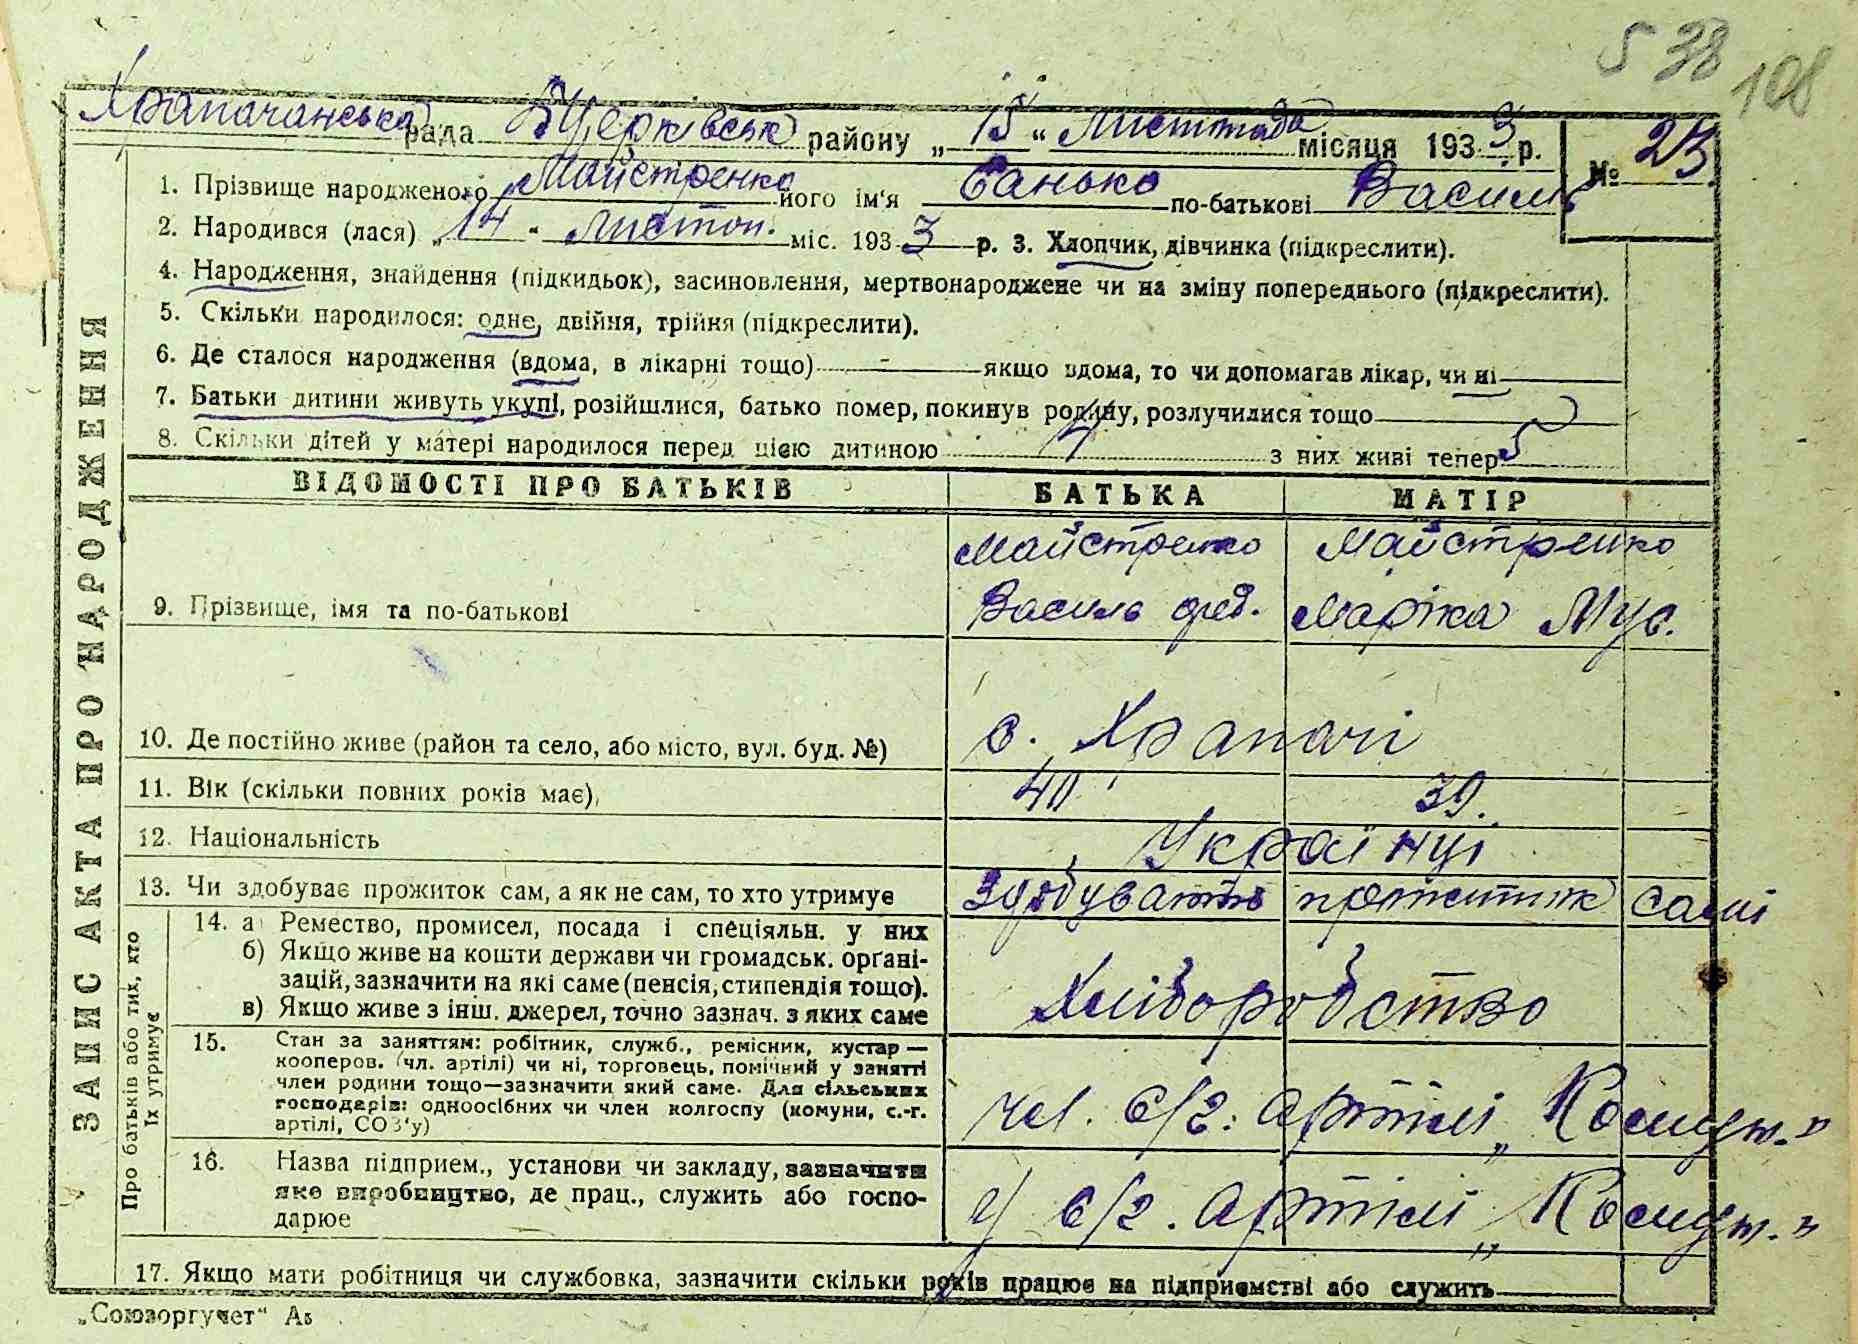 538
108
Храпачанська рада БЦерківськ району „ 15 “ листопада місяця 1933 р.
№ 23
1. Прізвище народженого Майстренко його ім'я Санько по-батькові Василь
2. Народився (лася) „ 14 “ листоп. міс. 1933 р. 3. Хлопчик, дівчинка (підкреслити).
4. Народження, знайдення (підкидьок), засиновлення, мертвонароджене чи на зміну попереднього (підкреслити).
5. Скільки народилося: одне, двійня, трійня (підкреслити).
6. Де сталося народження (вдома, в лікарні тощо) - якщо вдома, то чи допомагав лікар, чи ні
7. Батьки дитини живуть укупі, розійшлися, батько помер, покинув родину, розлучилися тощо
8. Скільки дітей у матері народилося перед цією дитиною з них живі тепер 5
ВІДОМОСТІ ПРО БАТЬКІВ БАТЬКА МАТІР
Майстренко Майстренко
9. Прізвище, імя та по-батькові Василь Фед. Марійка Мус.
10. Де постійно живе (район та село, або місто, вул. буд. №) с. Храпачі
11. Вік (скільки повних років має), 40 39.
12. Національність Українці
13. Чи здобуває прожиток сам, а як не сам, то хто утримує Здобувають прожиток самі
14. а) Ремество, промисел, посада і спеціяльн. у них
б) Якщо живе на кошти держави чи громадськ. орґані-
зацій, зазначити на які саме (пенсія, стипендія тощо).
в) Якщо живе з інш. джерел, точно зазнач. з яких саме
Хліборобство
15. Стан за заняттям: робітник, служб., ремісник, кустар —
кооперов. (чл. артілі) чи ні, торговець, помічний у занятті
член родини тощо—зазначити який саме. Для сільських
господарів: одноосібних чи член колгоспу (комуни, с.-г.
артілі, СОЗ'у)
чл. с/г. артілі „Комун.“
16. Назва підприєм., установи чи закладу, зазначити
яке виробництво, де прац., служить або госпо-
дарює
у с/г. артілі „Комун.“
17. Якщо мати робітниця чи службовка, зазначити скільки років працює на підприємстві або служить
ЗАПИС АКТА ПРО НАРОДЖЕННЯ
Про батьків або тих, хто
їх утримує
„Союзоргучет“